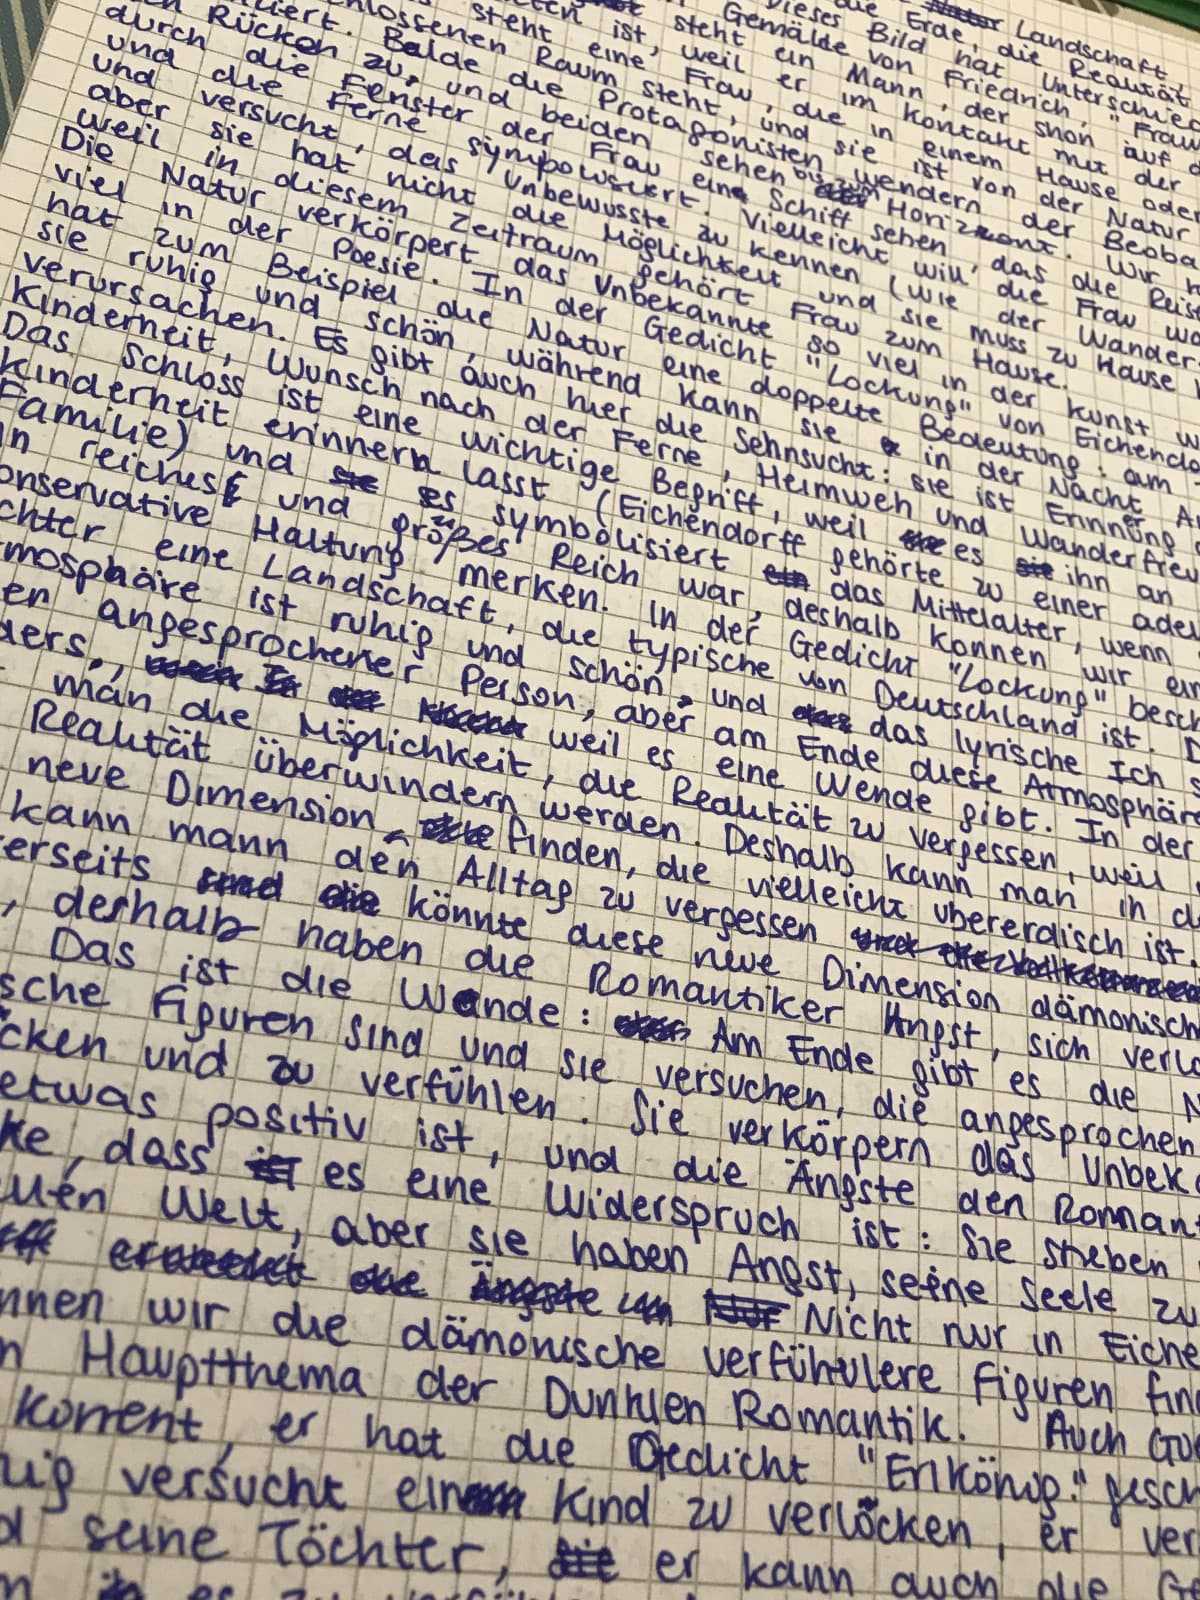 die Erde, die Landschaft
dieses Bild hat Realität
Gemälde von Friedrich, "Frau
steht ein Mann, der shon auf
ist, weil er im Kontakt mit der
steht eine Frau, die in einem Hause oder
schlossenen Raum steht, und sie ist von der Natur
Rücken zu, und beiden Protagonisten wendern der Beoba
durch die Fenster der sehen bis zum Horizont. Wir
und die Ferne symbolisiert. Schiff sehen, das die Reis
und versucht, das Unbewusste zu kennen (wie der Wander
aber sie hat nicht die Möglichkeit und sie muss zu Hause
weil in diesem Zeitraum gehört Frau zum Hause.
Die Natur verkörpert das Unbekannte so viel in der Kunst w
viel in der Poesie. In der Gedicht "Lockung" von Eichendo
hat zum Beispiel die Natur eine doppelte Bedeutung: am
sie ruhig und schön, während kann sie in der Nacht
verursachen. Es gibt auch hier die Sehnsucht: sie ist Erinnerung
Kinderheit, Wunsch nach der Ferne, Heimweh und Wanderfreu
Das Schloss ist eine wichtige Begriff, weil es ihn an
Kinderheit erinnern lasst (Eichendorff gehörte zu einer adel
Familie) und es symbolisiert das Mittelalter, wenn
in reiches und größes Reich war, deshalb konnen wir ein
onservative Haltung merken. In der Gedicht "Lockung" besch
chter eine Landschaft, die typische von Deutschland ist.
mosphäre ist ruhig und schön, und das lyrische Ich
er angesprochener Person, aber am Ende diese Atmosphär
ders, weil es eine Wende gibt. In der
man die Möglichkeit, die Realität zu vergessen, weil
Realität überwindern werden. Deshalb kann man in d
neue Dimension finden, die vielleicht ubererdisch ist.
kann mann den Alltag zu vergessen
erseits könnte diese neue Dimension dämonisch
, deshalb haben die Romantiker Angst, sich verl
Das ist die Wende: Am Ende gibt es die
sche Figuren sind und sie versuchen, die angesprochen
cken und zu verfühlen. Sie verkörpern das Unbek
etwas positiv ist, und die Ängste den Roman
ke, dass es eine Widerspruch ist: Sie streben
uen Welt, aber sie haben Angst, seine Seele zu
Nicht nur in Eiche
nnen wir die dämonische verführulere Figuren fin
n Hauptthema der Dunklen Romantik. Auch
korrent, er hat die Gedicht "Erlkönig" gesch
nig versucht ein Kind zu verlocken, er ver
d seine Töchter, er kann auch die